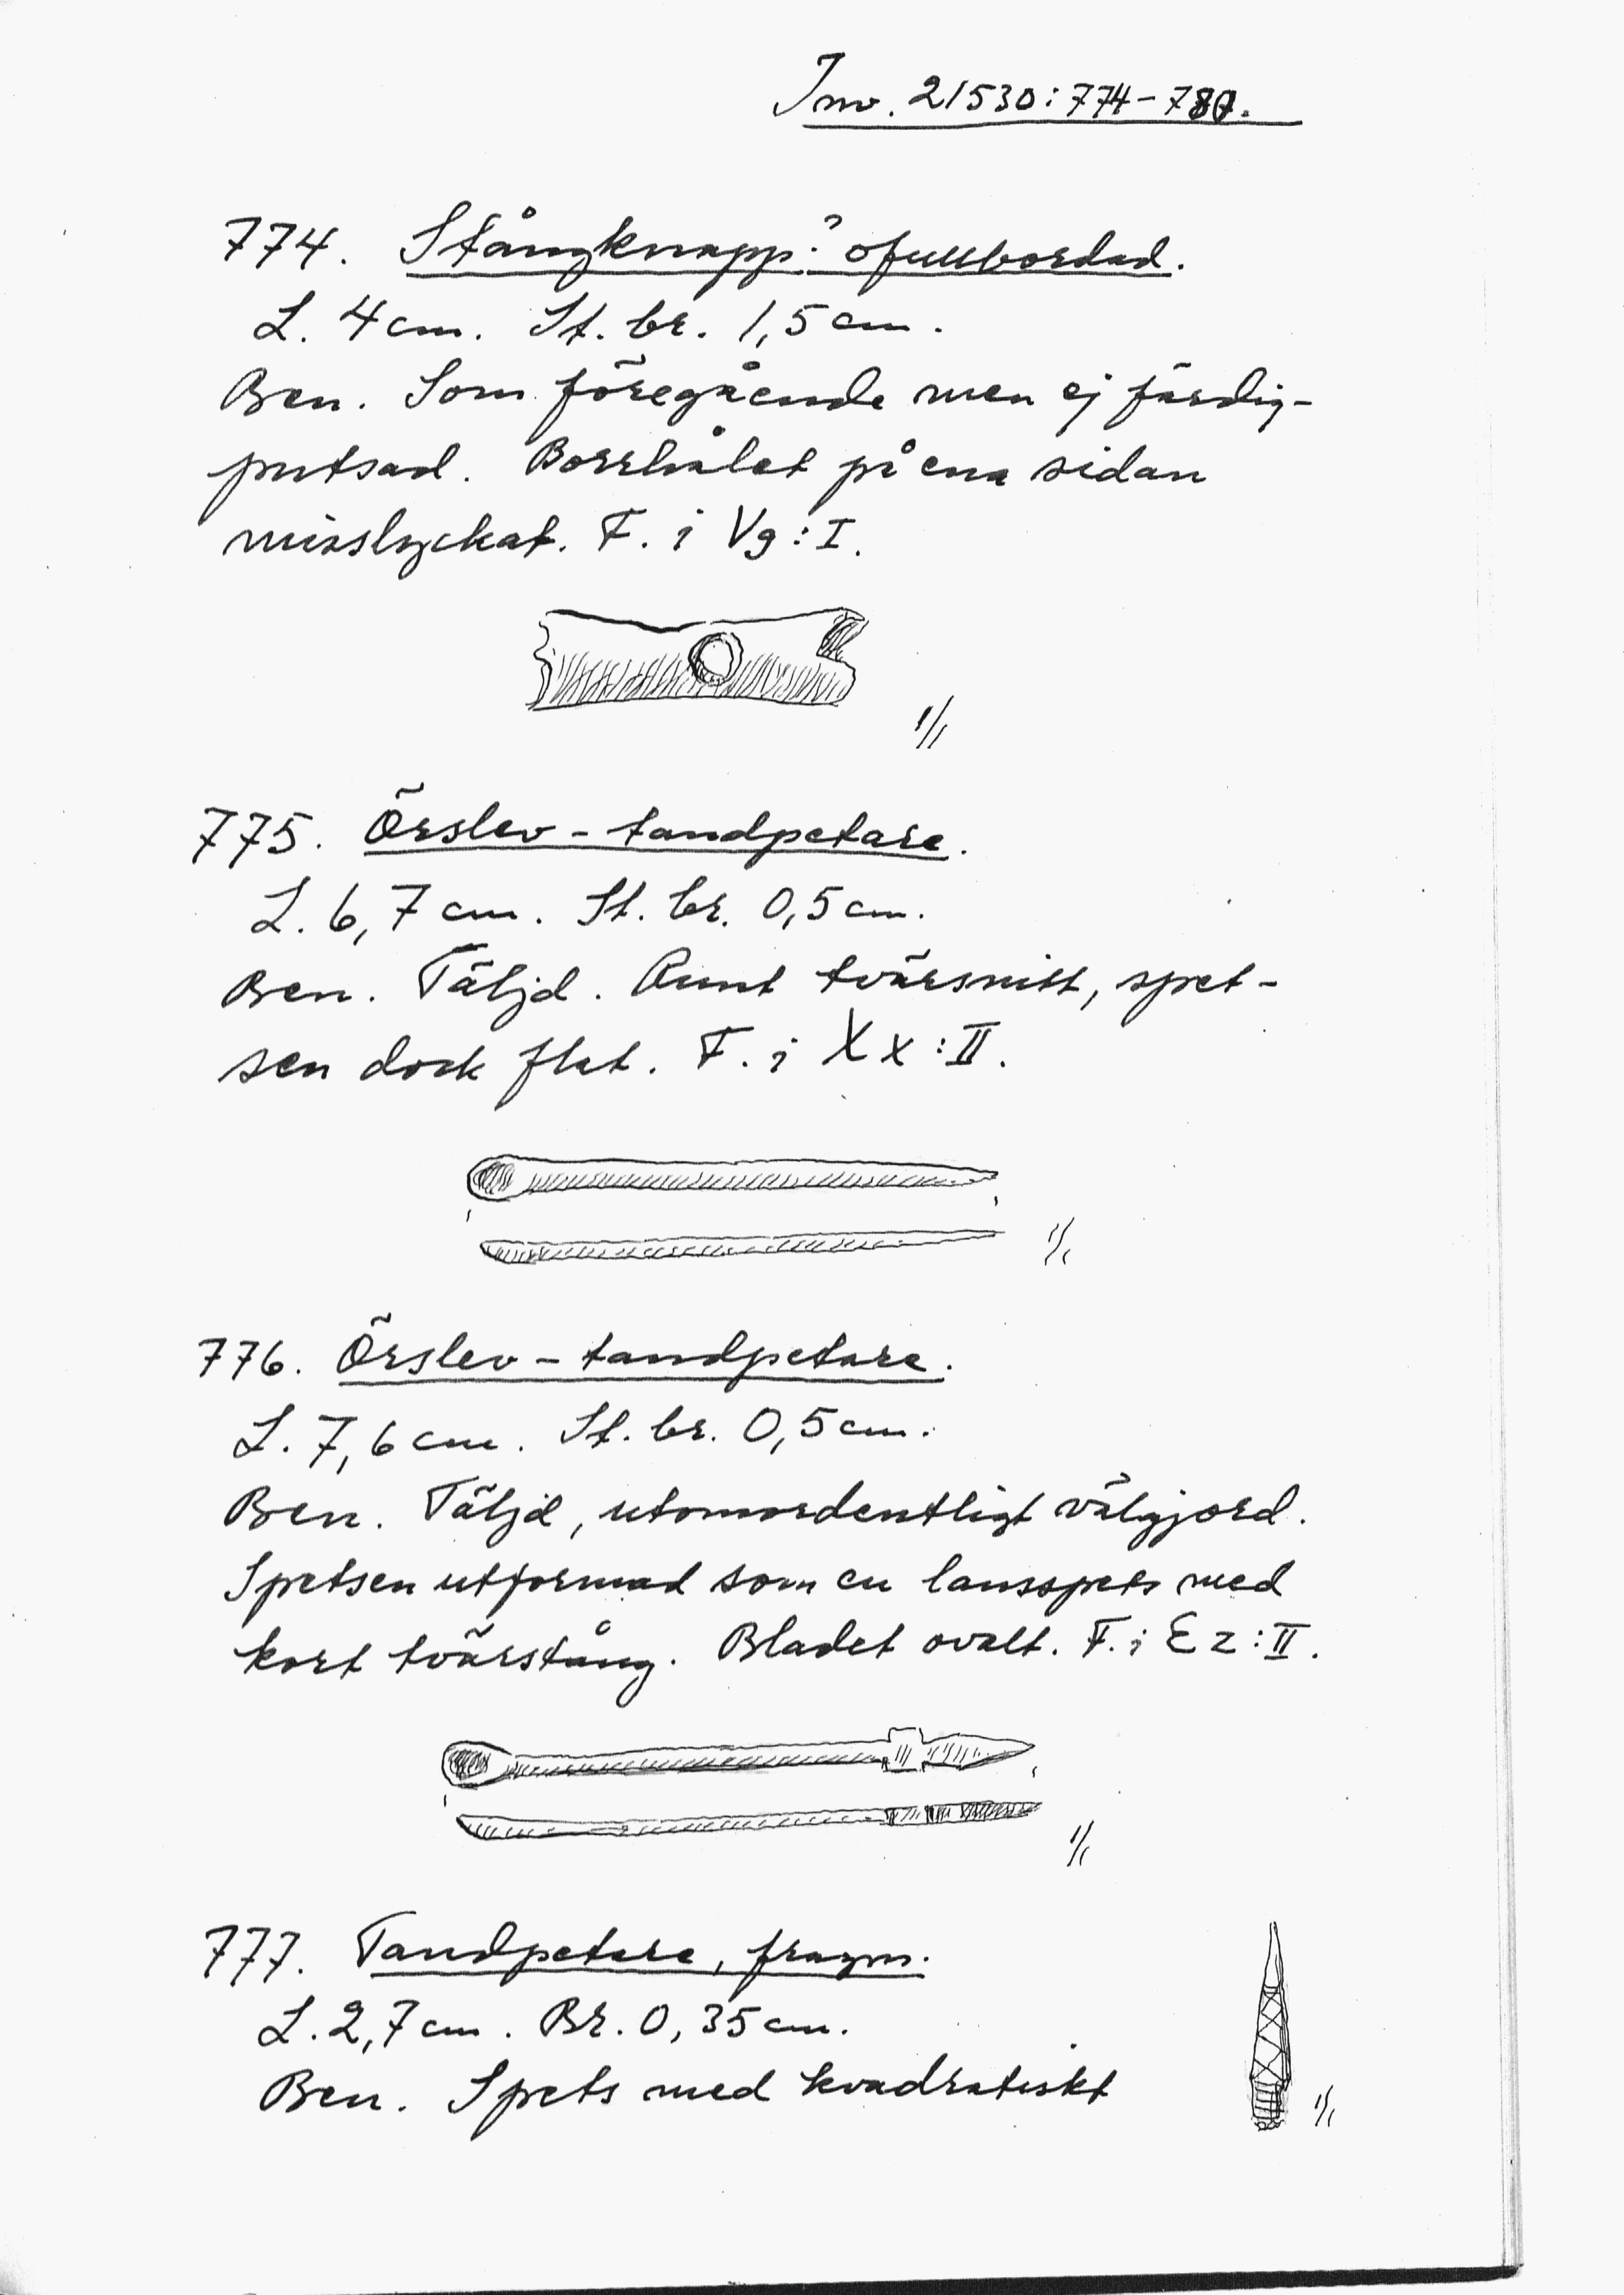 Inv. 21530:774-780.
774. Stångknapp? ofullbordad.
L. 4 cm. St. br. 1,5 cm.
Ben. Som föregående men ej färdig-
putsad. Borrhålet på ena sidan
misslyckat. F. i Vg:I.
1/1
775. Örslev-tandpetare.
L. 6,7 cm. St. br. 0,5 cm.
Ben. Täljd. Runt tvärsnitt, spet-
sen dock flat. F. i Xx:II.
1/1
776. Örslev-tandpetare.
L. 7,6 cm. St. br. 0,5 cm.
Ben. Täljd, utomordentligt välgjord.
Spetsen utformad som en lansspets med
kort tvärstång. Bladet ovalt. F. i Ez:II.
1/1
777. Tandpetare, fragm.
L. 2,7 cm. Br. 0,35 cm.
Ben. Spets med kvadratiskt
1/1